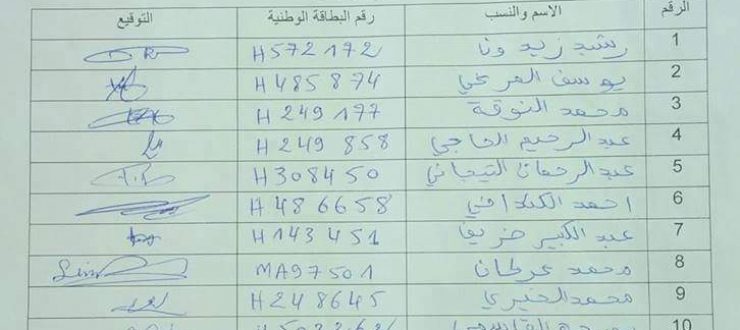 الرقم الاسم والنسب رقم البطاقة الوطنية التوقيع
1 رشيد زيدونا H572172
2 يوسف المرعي H485874
3 محمد النوقة H249177
4 عبد الرحيم الحاجي H249858
5 عبد الرحمان التيجاني H308450
6 احمد الكندافي H486658
7 عبد الكبير خريفا H143451
8 محمد عرطان MA97501
9 محمد الحنيري H248645
10